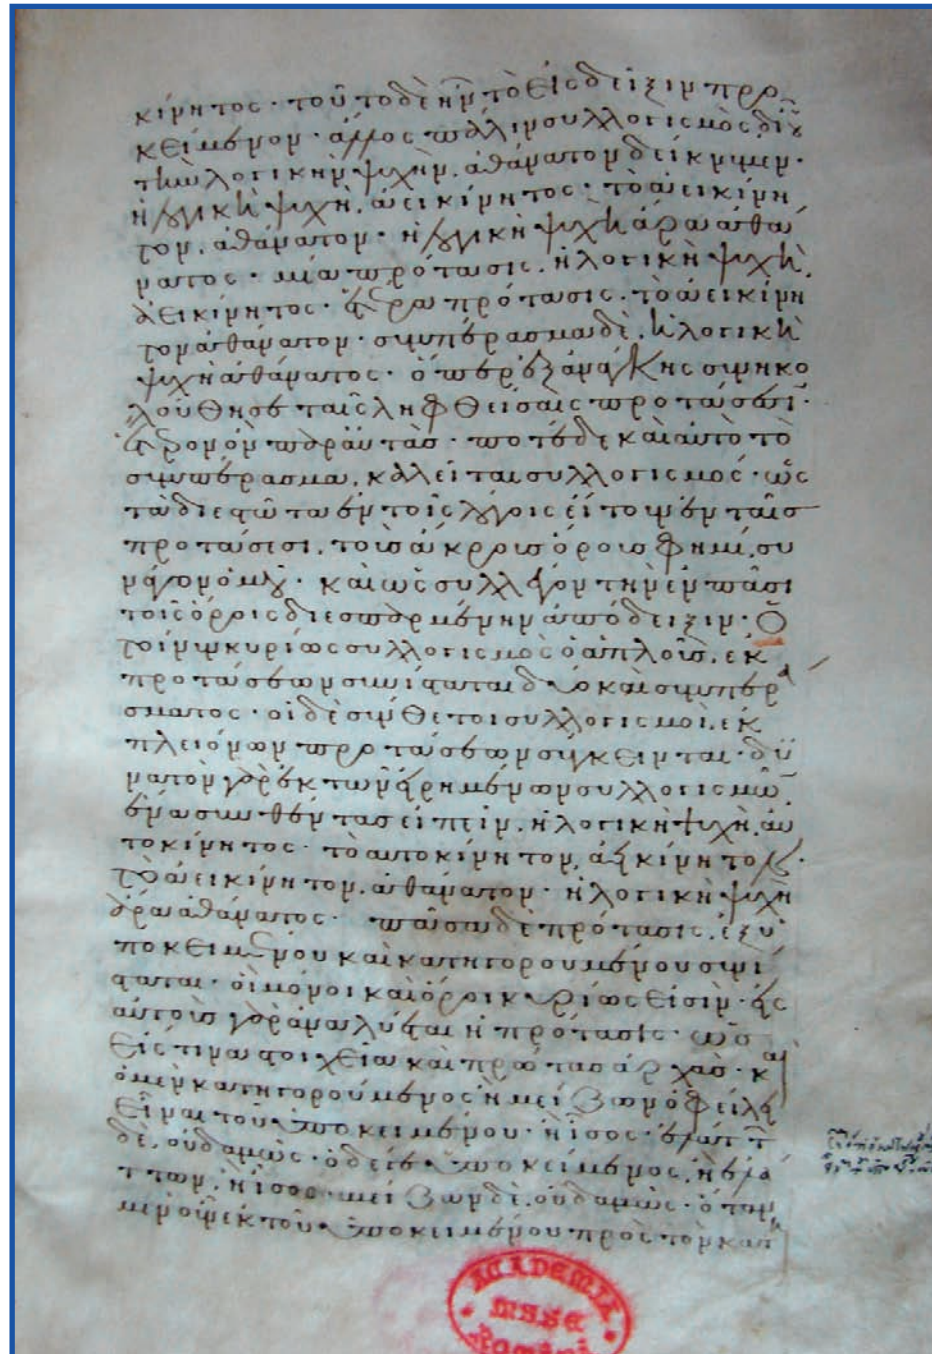 κίνητος· τοῦτο δὲ ἦν τὸ εἰς δεῖξιν προ
κείμενον· ἄλλος πάλιν συλλογισμὸς δι' οὗ
τὴν λογικὴν ψυχὴν, ἀθάνατον δείκνυμεν·
ἡ λογικὴ ψυχὴ, ἀεικίνητος· τὸ ἀεικίνη
τον, ἀθάνατον· ἡ λογικὴ ψυχὴ ἄρα ἀθά
νατος· μία πρότασις, ἡ λογικὴ ψυχὴ,
ἀεικίνητος· ἑτέρα πρότασις, τὸ ἀεικίνη
τον ἀθάνατον· συμπέρασμα δὲ, ἡ λογικὴ
ψυχὴ ἀθάνατος· ὅπερ ἐξ ἀνάγκης συνηκο
λούθησε ταῖς ληφθείσαις προτάσεσι·
ἕτερον ὂν παρ' αὐτάς· ποτὲ δὲ καὶ αὐτὸ τὸ
συμπέρασμα, καλεῖται συλλογισμός· ὡς
τὰ διεστῶτα ἐν τοῖς λόγοις εἴτουν ἐν ταῖς
προτάσεσι, τοῖς ἄκροις ὅροις φημὶ, συ
νάγον ὁμοῦ· καὶ ὡς συλλέγον τὴν ἐν πᾶσι
τοῖς ὅροις διεσπαρμένην ἀπόδειξιν· ὅ
τοίνυν κυρίως συλλογισμὸς ὁ ἁπλοῦς, ἐκ
προτάσεων συνίσταται δύο καὶ συμπερά
σματος· οἱ δὲ σύνθετοι συλλογισμοὶ, ἐκ
πλειόνων προτάσεων σύγκεινται· δυ
νατὸν γὰρ ἐκ τῶν εἰρημένων συλλογισμῶν
ἕνα συνθέντας εἰπεῖν, ἡ λογικὴ ψυχὴ, αὐ
τοκίνητος· τὸ αὐτοκίνητον, ἀεικίνητον·
τὸ ἀεικίνητον, ἀθάνατον· ἡ λογικὴ ψυχὴ
ἄρα ἀθάνατος· πᾶσα δὲ πρότασις, ἐξ ὑ
ποκειμένου καὶ κατηγορουμένου συνί
σταται· οἱ μόνοι καὶ ὅροι κυρίως εἰσὶν· εἰς
αὐτοὺς γὰρ ἀναλύεται ἡ πρότασις· ὡς
εἴς τινα στοιχεῖα καὶ πρώτας ἀρχάς· καὶ
ὁ μὲν κατηγορούμενος ἢ μείζων ὀφείλει
εἶναι τοῦ ὑποκειμένου· ἢ ἴσος· ἐλάττων
δὲ, οὐδαμῶς· ὁ δέ γε ὑποκείμενος, ἢ ἐλά
ττων, ἢ ἴσος· μείζων δὲ, οὐδαμῶς· ὅταν
μὲν οὖν ἐκ τοῦ ὑποκειμένου πρὸς τὸν κατη
ACADEMIA
MSSE
Romîni